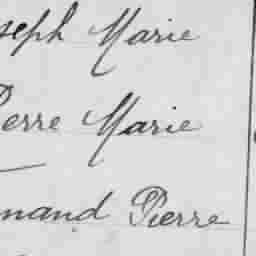 seph Marie
Pierre Marie
mand Pierre